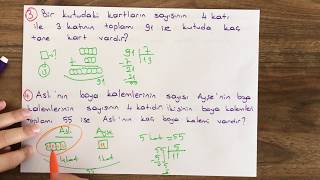 3) Bir kutudaki kartların sayısının 4 katı
ile 3 katının toplamı 91 ise kutuda kaç
tane kart vardır?
91 | 7
-7 | 13
21
-21
4) Aslı'nın boya kalemlerinin sayısı Ayşe'nin boya
kalemlerinin sayısının 4 katıdır. İkisinin boya kalemleri
toplamı 55 ise Aslı'nın kaç boya kalemi vardır?
Aslı Ayşe
11
4 kat 1 kat
55
5 kat = 55
55 | 5
5 | 11